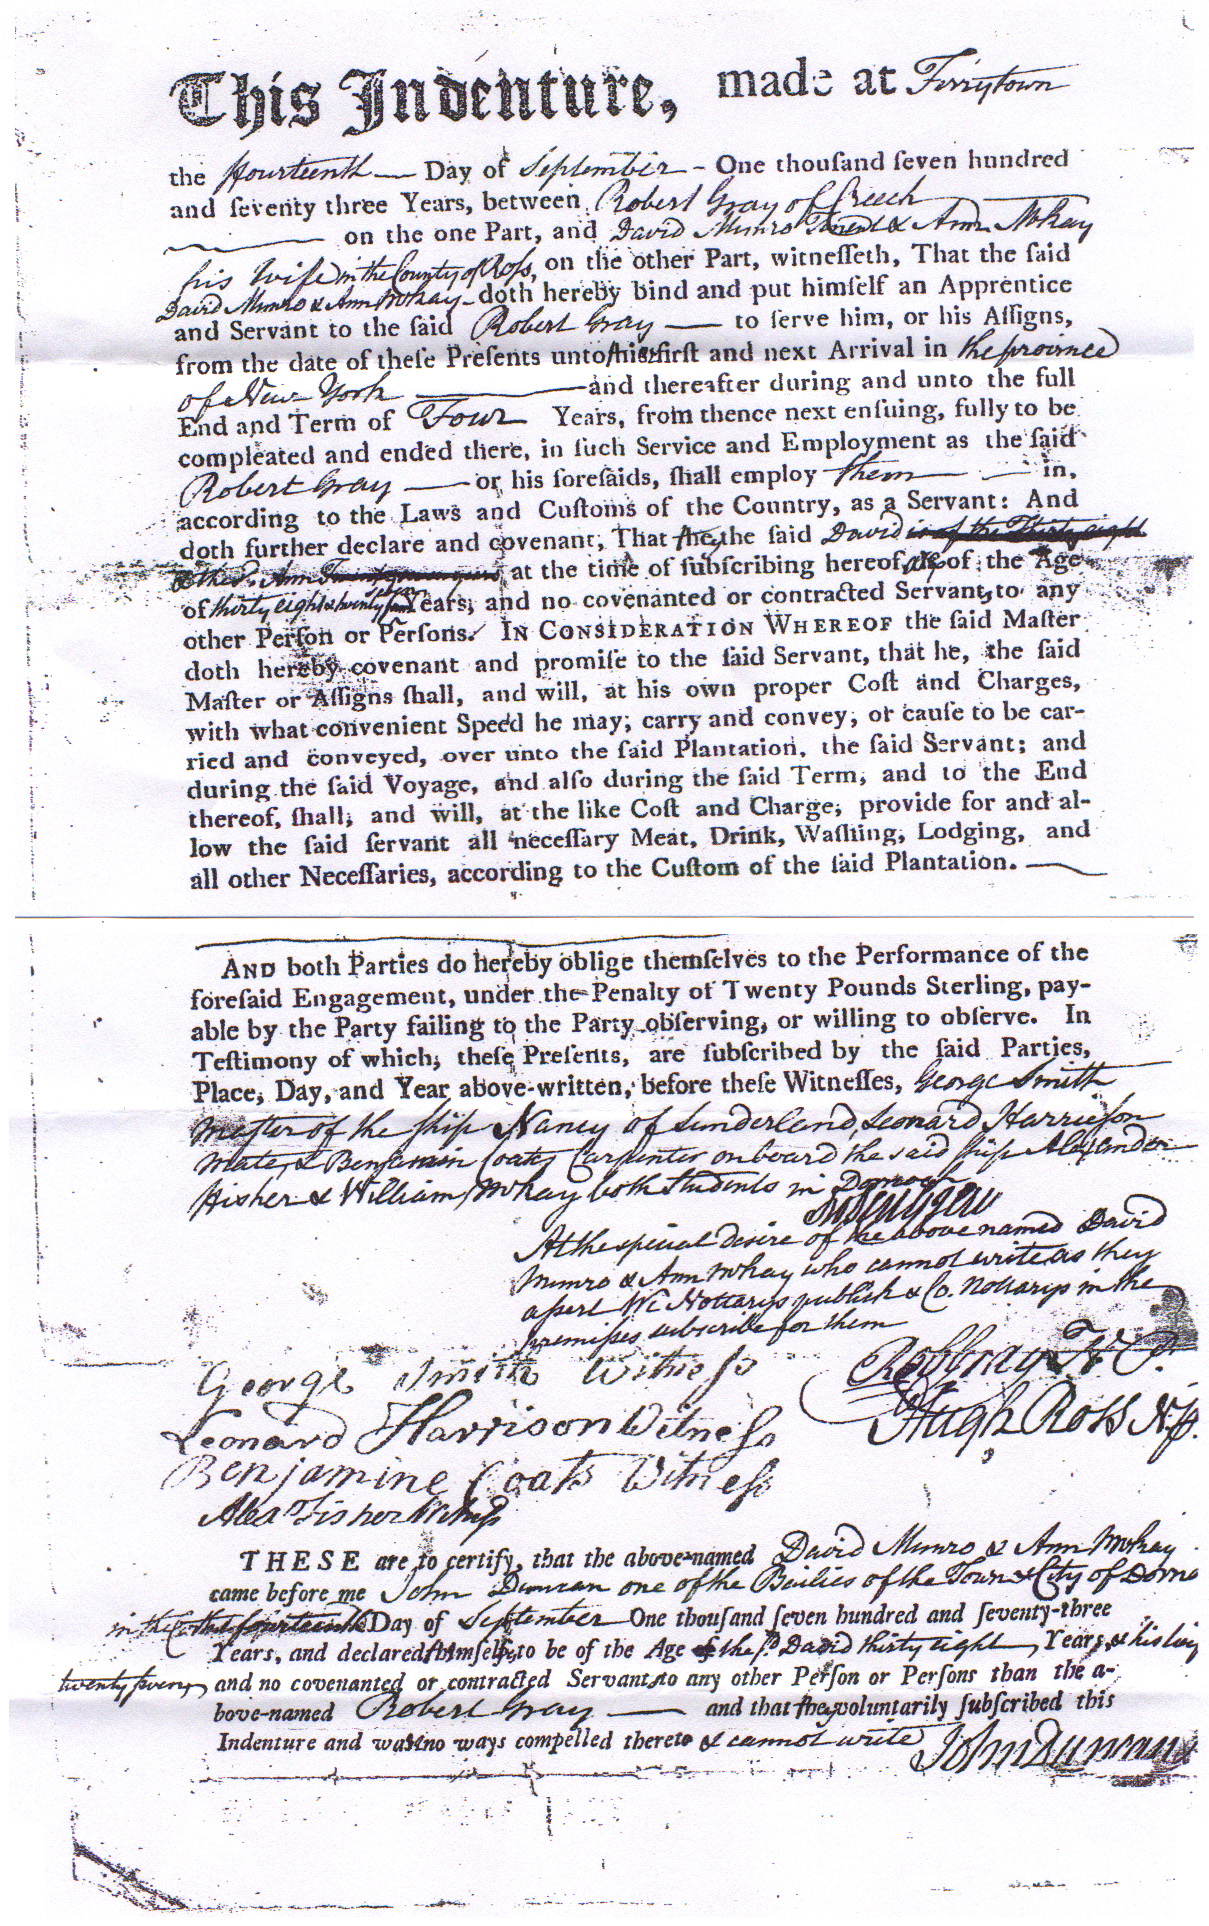 This Indenture, made at Ferrytown
the fourteenth Day of September - One thouſand ſeven hundred
and ſeventy three Years, between Robert Gray of Creech
on the one Part, and David Munro Tenent & Ann McKay
his Wife in the County of Roſs, on the other Part, witneſſeth, That the ſaid
David Munro & Ann McKay doth hereby bind and put himſelf an Apprentice
and Servant to the ſaid Robert Gray to ſerve him, or his Aſſigns,
from the date of theſe Preſents unto their firſt and next Arrival in the province
of New York and thereafter during and unto the full
End and Term of Four Years, from thence next enſuing, fully to be
compleated and ended there, in ſuch Service and Employment as the ſaid
Robert Gray or his foreſaids, ſhall employ them in,
according to the Laws and Cuſtoms of the Country, as a Servant: And
doth further declare and covenant, That they the ſaid David is of the Thirty eight
& the sd. Ann at the time of ſubſcribing hereof are of the Age
of thirty eight & twenty seven Years, and no covenanted or contracted Servants to any
other Perſon or Perſons. IN CONSIDERATION WHEREOF the ſaid Maſter
doth hereby covenant and promiſe to the ſaid Servant, that he, the ſaid
Maſter or Aſſigns ſhall, and will, at his own proper Coſt and Charges,
with what convenient Speed he may, carry and convey, or cauſe to be car-
ried and conveyed, over unto the ſaid Plantation, the ſaid Servant; and
during the ſaid Voyage, and alſo during the ſaid Term, and to the End
thereof, ſhall, and will, at the like Coſt and Charge, provide for and al-
low the ſaid ſervant all neceſſary Meat, Drink, Waſhing, Lodging, and
all other Neceſſaries, according to the Cuſtom of the ſaid Plantation.
AND both Parties do hereby oblige themſelves to the Performance of the
foreſaid Engagement, under the Penalty of Twenty Pounds Sterling, pay-
able by the Party failing to the Party obſerving, or willing to obſerve. In
Teſtimony of which, theſe Preſents, are ſubſcribed by the ſaid Parties,
Place, Day, and Year above-written, before theſe Witneſſes, George Smith
Master of the ſhip Nancy of Sunderland, Leonard Harrieſon
Mate, & Benjamin Coats Carpenter on board the said ſhip Alexander
Fisher & William McKay both Students in Dornoch
At the special desire of the above named David
Munro & Ann McKay who cannot write as they
aſert We Nottarys publick & Co. Nottarys in the
premiſes subscribe for them
George Smith Witneſs Rob Gray N.P.
Leonard Harrison Witneſs Hugh Ross N.P.
Benjamine Coats Witneſs
Alexr Fisher Witneſs
THESE are to certify, that the above-named David Munro & Ann McKay
came before me John Duncan one of the Bailies of the Town & City of Dorno
in the fourteenth Day of September One thouſand ſeven hundred and ſeventy-three
Years, and declared themſelves to be of the Age the sd. David thirty eight Years, & his
twenty seven, and no covenanted or contracted Servants to any other Perſon or Perſons than the a-
bove-named Robert Gray and that they voluntarily ſubſcribed this
Indenture and was no ways compelled thereto & cannot write John Duncan